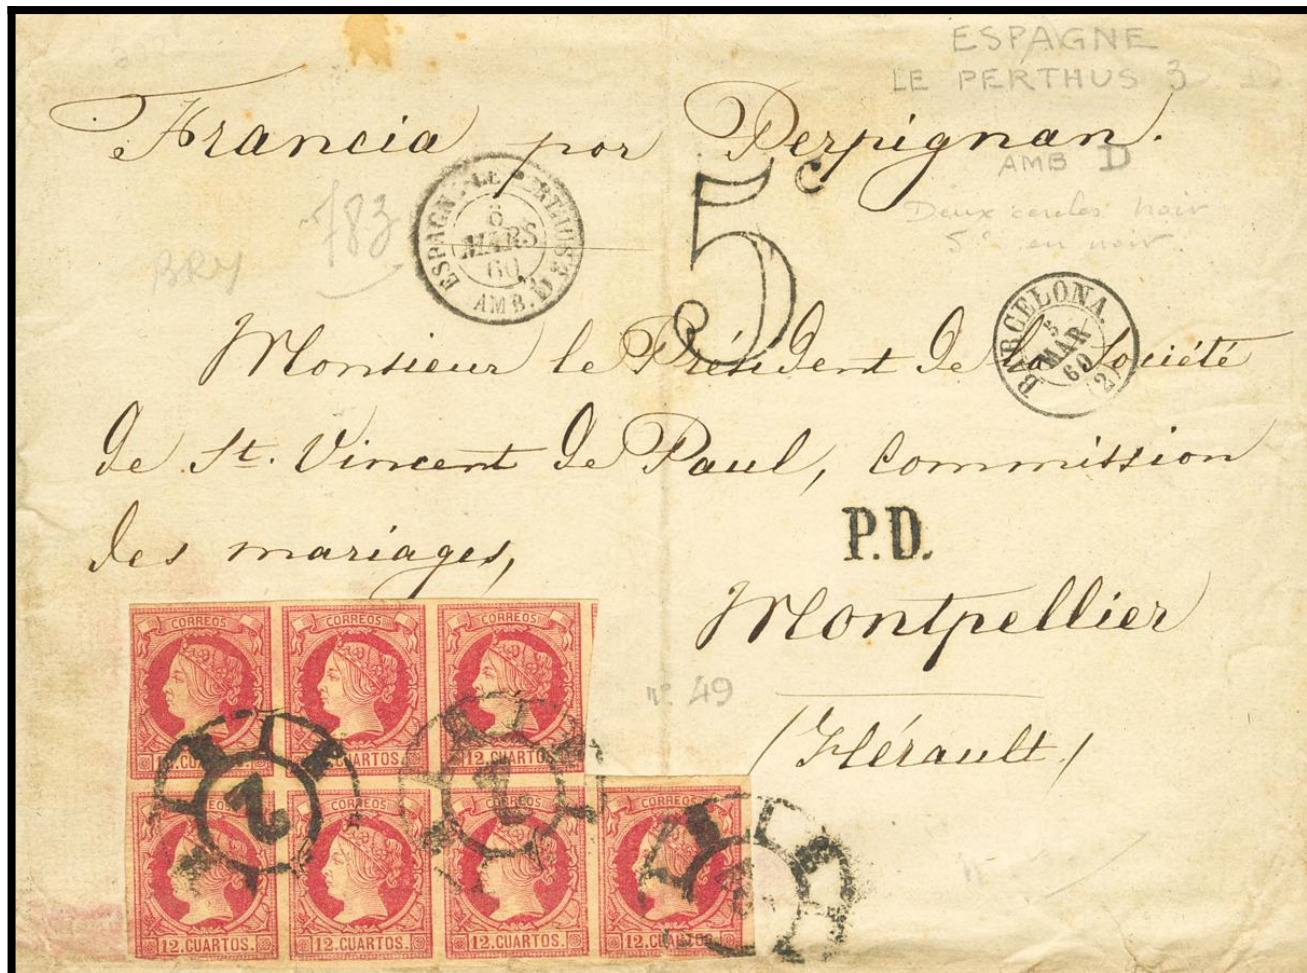 ESPAGNE
LE PERTHUS 3
Francia por Perpignan.
AMB D
Deux cercles noir
5c en noir
783
BRY
ESPAGNE. LE PERTHUS 3
6
MARS
60
AMB. D
5c
BARCELONA.
5
MAR
60
(2)
Monsieur le Président de la Société
de St. Vincent de Paul, Commission
des mariages,
P.D.
Montpellier
(Hérault)
n° 49
CORREOS CORREOS CORREOS
12.CUARTOS. 12.CUARTOS. 12.CUARTOS.
2 2
CORREOS CORREOS CORREOS CORREOS
12.CUARTOS. 12.CUARTOS. 12.CUARTOS. 12.CUARTOS.